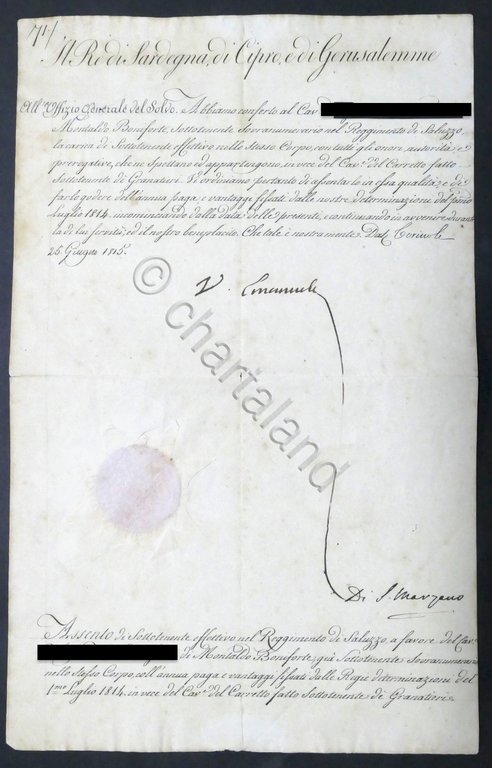 Il Re di Sardegna, di Cipro, e di Gerusalemme
All' Uffizio Generale del Soldo. Abbiamo conferto al Cav
Montaldo Bonforte, Sottotenente Soranumerario nel Reggimento di Saluzzo,
la carica di Sottotenente effettivo nello stesso Corpo, con tutti gli onori, autorità, e
prerogative, che ne spettano ed appartengono, in vece del Cav.e del Carretto fatto
Sottotenente di Granatieri. Vi ordiniamo pertanto di assentarlo in essa qualità, e di
farlo godere dell'annua paga, e vantaggi fissati dalle nostre determinazioni del primo
Luglio 1814. incominciando dalla data delle presenti, e continuando in avvenire durante
la di lui servitù, ed il nostro beneplacito. Che tale è nostra mente. Dat.
25 Giugno 1815.
V. Emanuele
© chartaland
Di S. Marzano
Assento di Sottotenente effettivo nel Reggimento di Saluzzo a favore del Cav.e
di Montaldo Bonforte, già Sottotenente Soranumerario
nello stesso Corpo, coll'annua paga e vantaggi fissati dalle Regie determinazioni del
1.mo Luglio 1814, in vece del Cav.e del Carretto fatto Sottotenente de' Granatieri.